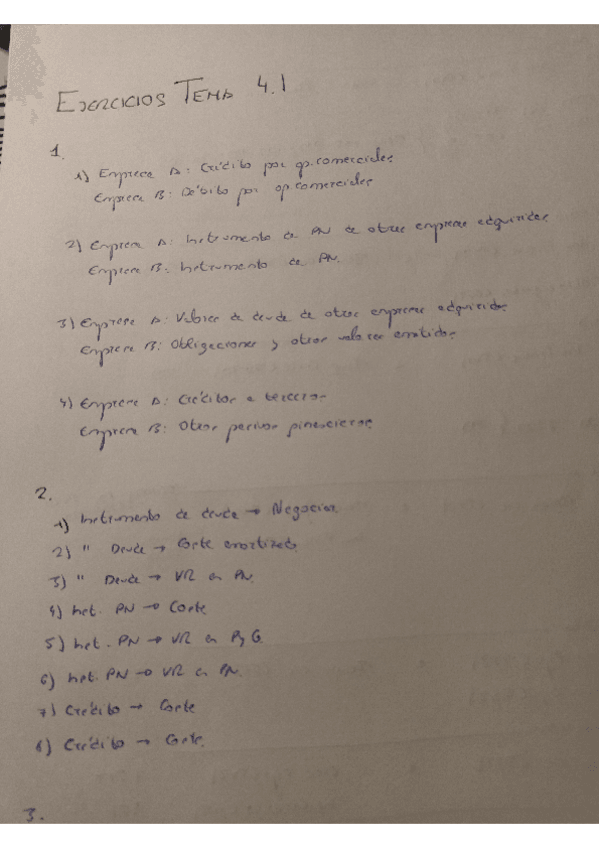 EJERCICIOS TEMA 4.1
1.
1) Empresa A: Crédito por op. comerciales
Empresa B: Débito por op. comerciales
2) Empresa A: Instrumento de PN de otras empresas adquiridas
Empresa B: Instrumento de PN.
3) Empresa A: Valores de deuda de otras empresas adquiridos
Empresa B: Obligaciones y otros valores emitidos
4) Empresa A: Créditos a terceros
Empresa B: Otros pasivos financieros
2.
1) Instrumento de deuda → Negociar
2) " Deuda → Coste amortizado
3) " Deuda → VR en PN.
4) Inst. PN → Coste
5) Inst. PN → VR en PyG.
6) Inst. PN → VR en PN.
7) Crédito → Coste
8) Crédito → Coste.
3.